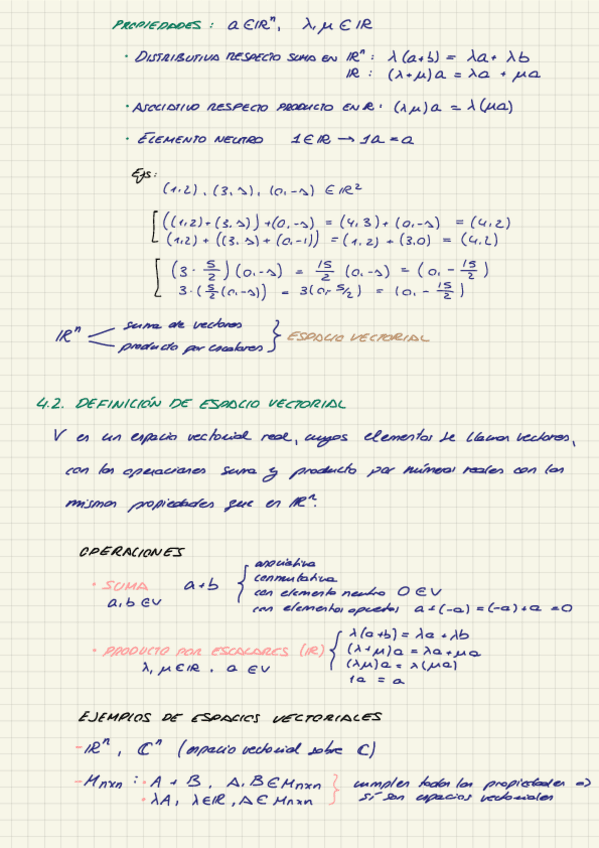 PROPIEDADES : a ∈ ℝⁿ, λ, μ ∈ ℝ
· DISTRIBUTIVA RESPECTO SUMA EN ℝⁿ : λ(a+b) = λa + λb
ℝ : (λ+μ)a = λa + μa
· ASOCIATIVO RESPECTO PRODUCTO EN ℝ: (λμ)a = λ(μa)
· ELEMENTO NEUTRO 1 ∈ ℝ → 1a = a
Ejs:
(1,2), (3,1), (0,-1) ∈ ℝ²
((1,2)+(3,1))+(0,-1) = (4,3)+(0,-1) = (4,2)
(1,2) + ((3,1)+(0,-1)) = (1,2)+(3,0) = (4,2)
(3·5/2)(0,-1) = 15/2 (0,-1) = (0,-15/2)
3·(5/2(0,-1)) = 3(0,-5/2) = (0,-15/2)
ℝⁿ suma de vectores
producto por escalares } ESPACIO VECTORIAL
4.2. DEFINICIÓN DE ESPACIO VECTORIAL
V es un espacio vectorial real, cuyos elementos se llaman vectores,
con las operaciones suma y producto por números reales con las
mismas propiedades que en ℝⁿ.
OPERACIONES
· SUMA a+b { asociativa
a,b ∈ V conmutativa
con elemento neutro 0 ∈ V
con elementos opuestos a+(-a) = (-a)+a = 0
· PRODUCTO POR ESCALARES (ℝ) { λ(a+b) = λa + λb
λ, μ ∈ ℝ, a ∈ V (λ+μ)a = λa + μa
(λμ)a = λ(μa)
1a = a
EJEMPLOS DE ESPACIOS VECTORIALES
- ℝⁿ, ℂⁿ (espacio vectorial sobre ℂ)
- Mnxn : · A + B, A,B ∈ Mnxn } cumplen todas las propiedades =>
· λA, λ∈ℝ, A ∈ Mnxn sí son espacios vectoriales